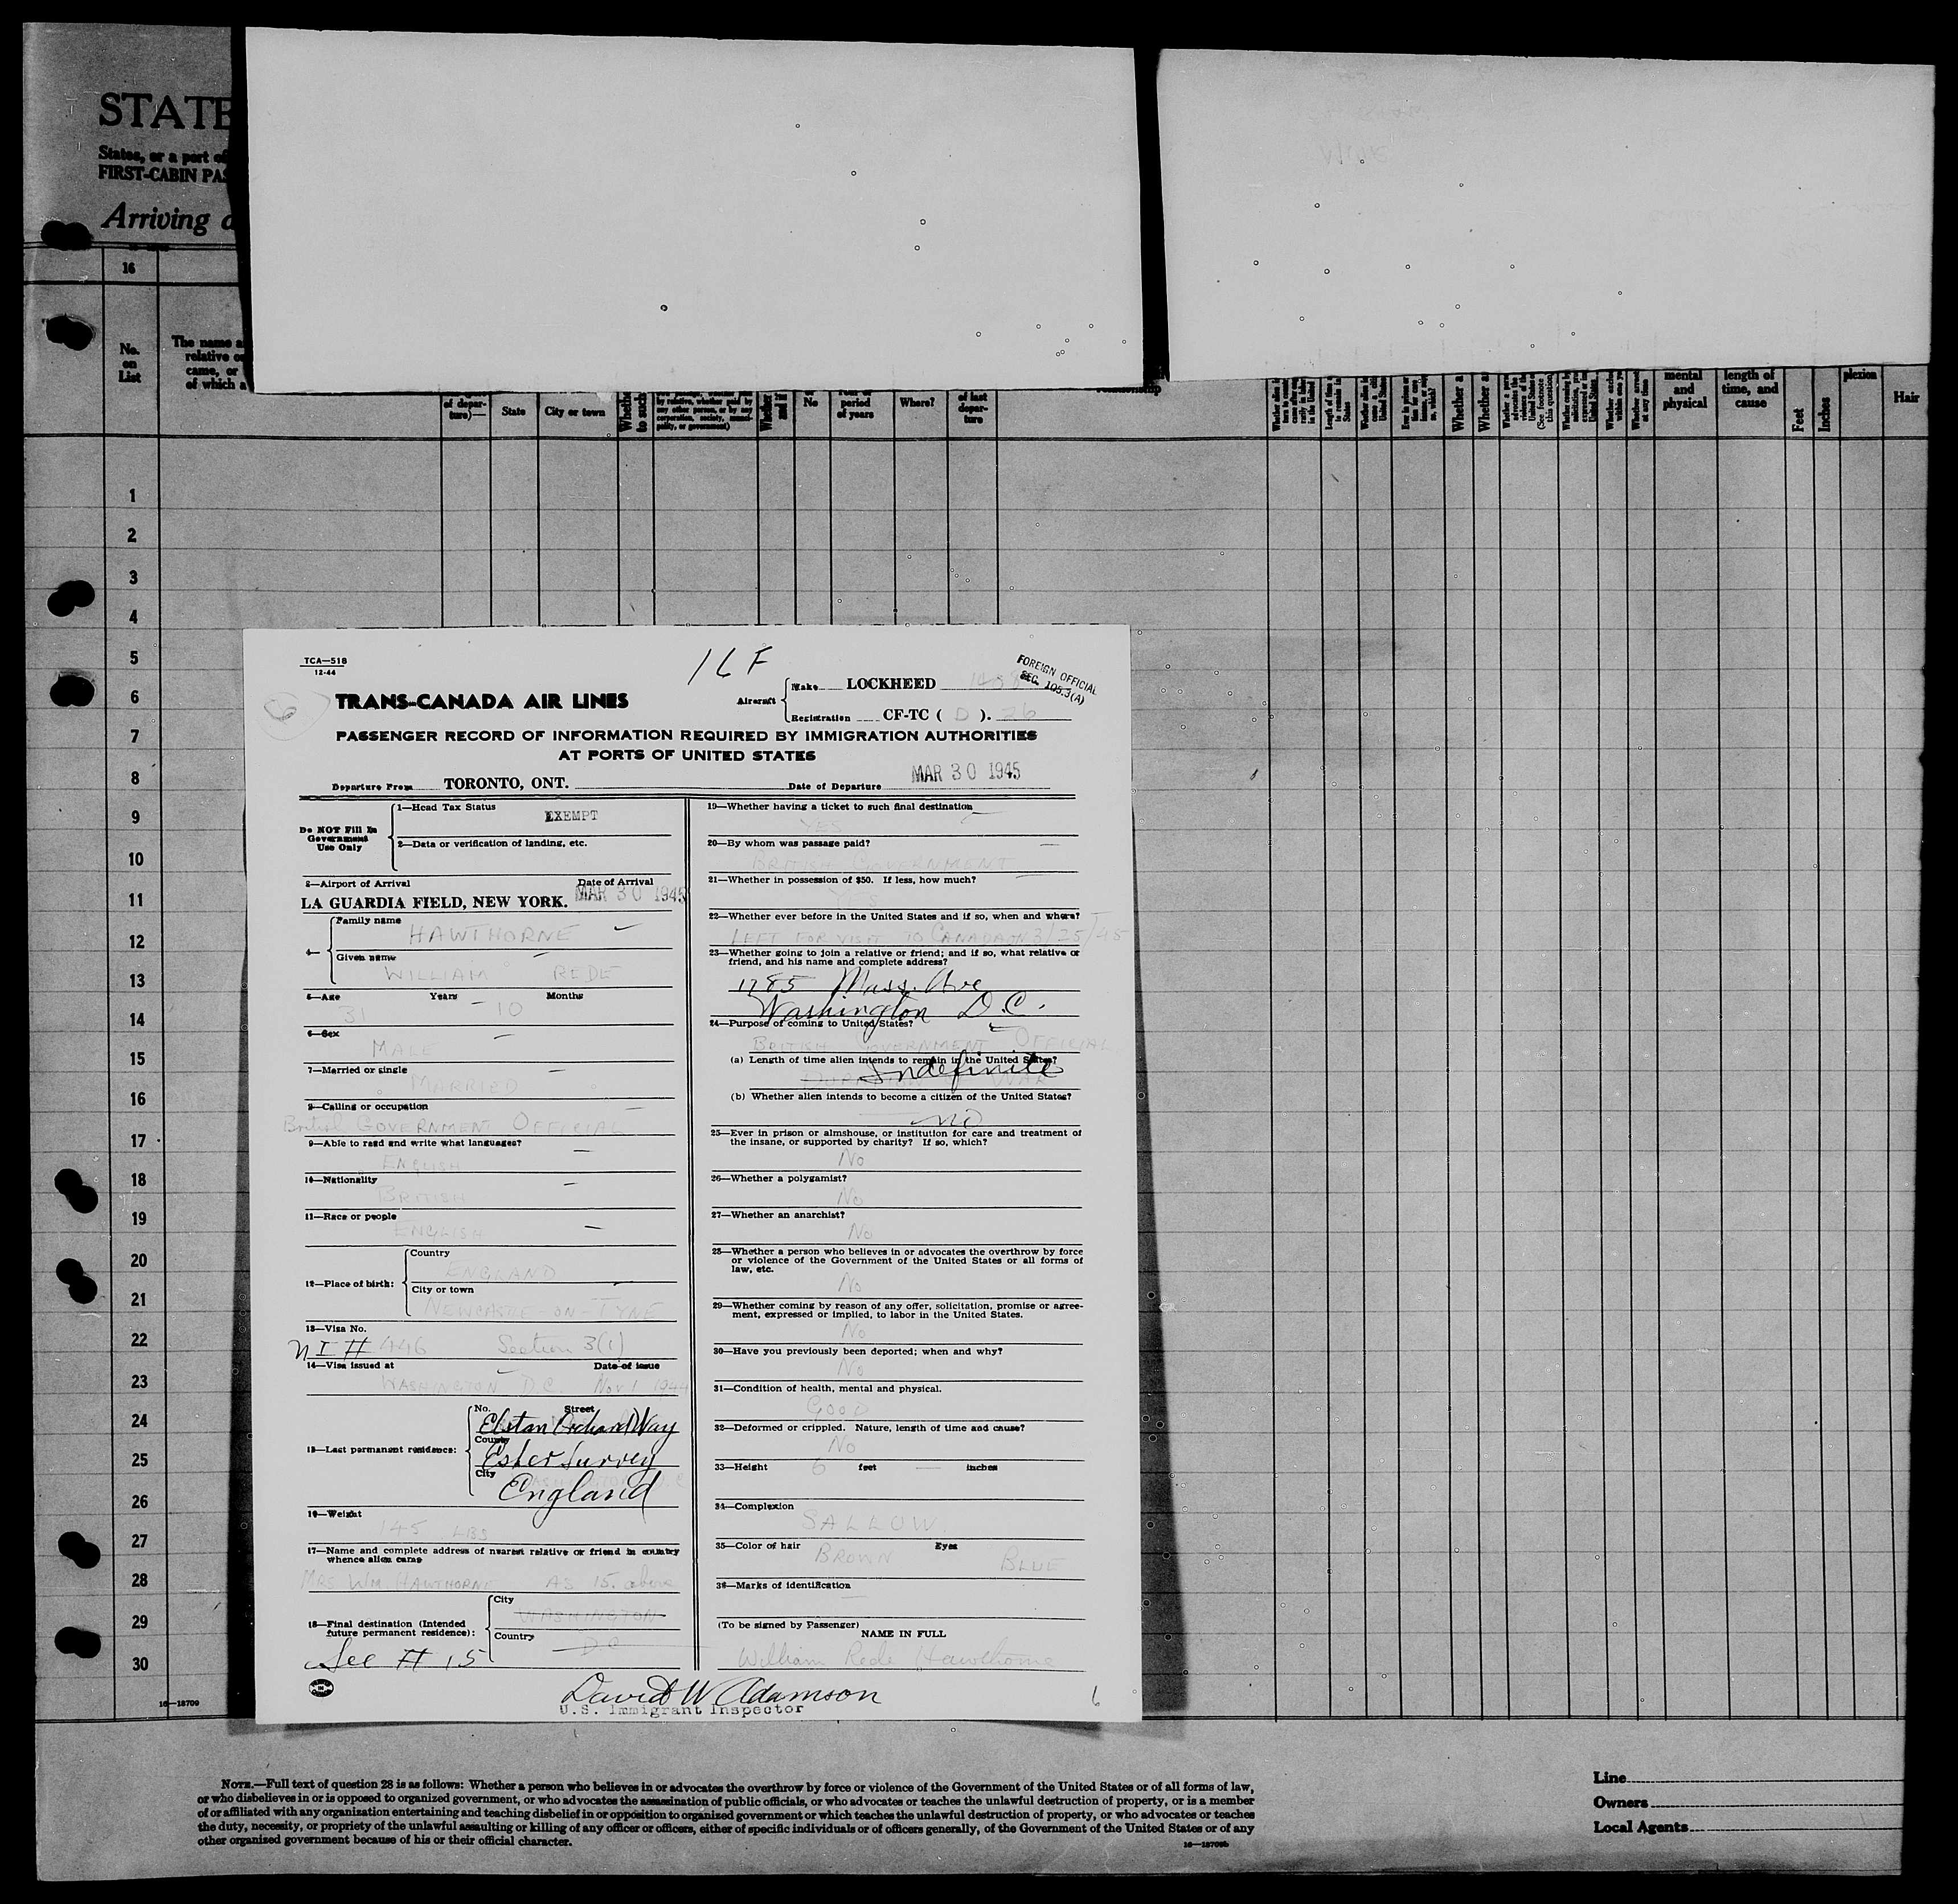 STATE
States, or a part of
FIRST-CABIN PAS
Arriving a
16
No.
on
List
The name a
relative or
came, or
of which a
of depar-
ture)—
State
City or town
Whethe
to such
by relative, whether paid by
any other person, or by any
corporation, society,
pality, or government)
Whether
and if
No
period
of years
Where?
of last
depar-
ture
Whether a
Whether a
mental
and
physical
length of
time, and
cause
Feet
Inches
plexion
Hair
1
2
3
4
5
6
7
8
9
10
11
12
13
14
15
16
17
18
19
20
21
22
23
24
25
26
27
28
29
30
16—18709
TCA—518
12-44
16F
FOREIGN OFFICIAL
SEC. 105.3(A)
TRANS-CANADA AIR LINES
Aircraft
Make LOCKHEED
Registration CF-TC ( D ). 26
PASSENGER RECORD OF INFORMATION REQUIRED BY IMMIGRATION AUTHORITIES
AT PORTS OF UNITED STATES
Departure From TORONTO, ONT. Date of Departure MAR 30 1945
Do NOT Fill In
Government
Use Only
1—Head Tax Status
EXEMPT
2—Data or verification of landing, etc.
3—Airport of Arrival Date of Arrival
LA GUARDIA FIELD, NEW YORK. MAR 30 1945
4—
Family name
HAWTHORNE
Given name
WILLIAM REDE
5—Age Years Months
31 10
6—Sex
MALE
7—Married or single
MARRIED
8—Calling or occupation
British GOVERNMENT OFFICIAL
9—Able to read and write what languages?
ENGLISH
10—Nationality
BRITISH
11—Race or people
ENGLISH
12—Place of birth:
Country
ENGLAND
City or town
NEWCASTLE-ON-TYNE
13—Visa No.
NI # 446 Section 3(1)
14—Visa issued at Date of issue
WASHINGTON D.C. Nov 1 1944
15—Last permanent residence:
No. Street
Elstan Orchard Way
County
Esher Surrey
City
England
16—Weight
145 LBS
17—Name and complete address of nearest relative or friend in country
whence alien came
MRS WM. HAWTHORNE AS 15. above
18—Final destination (Intended
future permanent residence):
City
WASHINGTON
Country
DC
See # 15
19—Whether having a ticket to such final destination
YES
20—By whom was passage paid?
BRITISH GOVERNMENT
21—Whether in possession of $50. If less, how much?
YES
22—Whether ever before in the United States and if so, when and where?
LEFT FOR VISIT TO CANADA ON 3/25/45
23—Whether going to join a relative or friend; and if so, what relative or
friend, and his name and complete address?
1785 Mass. Ave
Washington D.C.
24—Purpose of coming to United States?
BRITISH GOVERNMENT OFFICIAL
(a) Length of time alien intends to remain in the United States?
Indefinite
(b) Whether alien intends to become a citizen of the United States?
NO
25—Ever in prison or almshouse, or institution for care and treatment of
the insane, or supported by charity? If so, which?
No
26—Whether a polygamist?
No
27—Whether an anarchist?
No
28—Whether a person who believes in or advocates the overthrow by force
or violence of the Government of the United States or all forms of
law, etc.
No
29—Whether coming by reason of any offer, solicitation, promise or agree-
ment, expressed or implied, to labor in the United States.
No
30—Have you previously been deported; when and why?
No
31—Condition of health, mental and physical.
GOOD
32—Deformed or crippled. Nature, length of time and cause?
No
33—Height 6 feet — inches
34—Complexion
SALLOW
35—Color of hair Eyes
BROWN BLUE
36—Marks of identification
—
(To be signed by Passenger)
NAME IN FULL
William Rede Hawthorne
David W Adamson
U.S. Immigrant Inspector
6
NOTE.—Full text of question 28 is as follows: Whether a person who believes in or advocates the overthrow by force or violence of the Government of the United States or of all forms of law,
or who disbelieves in or is opposed to organized government, or who advocates the assassination of public officials, or who advocates or teaches the unlawful destruction of property, or is a member
of or affiliated with any organization entertaining and teaching disbelief in or opposition to organized government or which teaches the unlawful destruction of property, or who advocates or teaches
the duty, necessity, or propriety of the unlawful assaulting or killing of any officer or officers, either of specific individuals or of officers generally, of the Government of the United States or of any
other organized government because of his or their official character.
16—18709b
Line
Owners
Local Agents